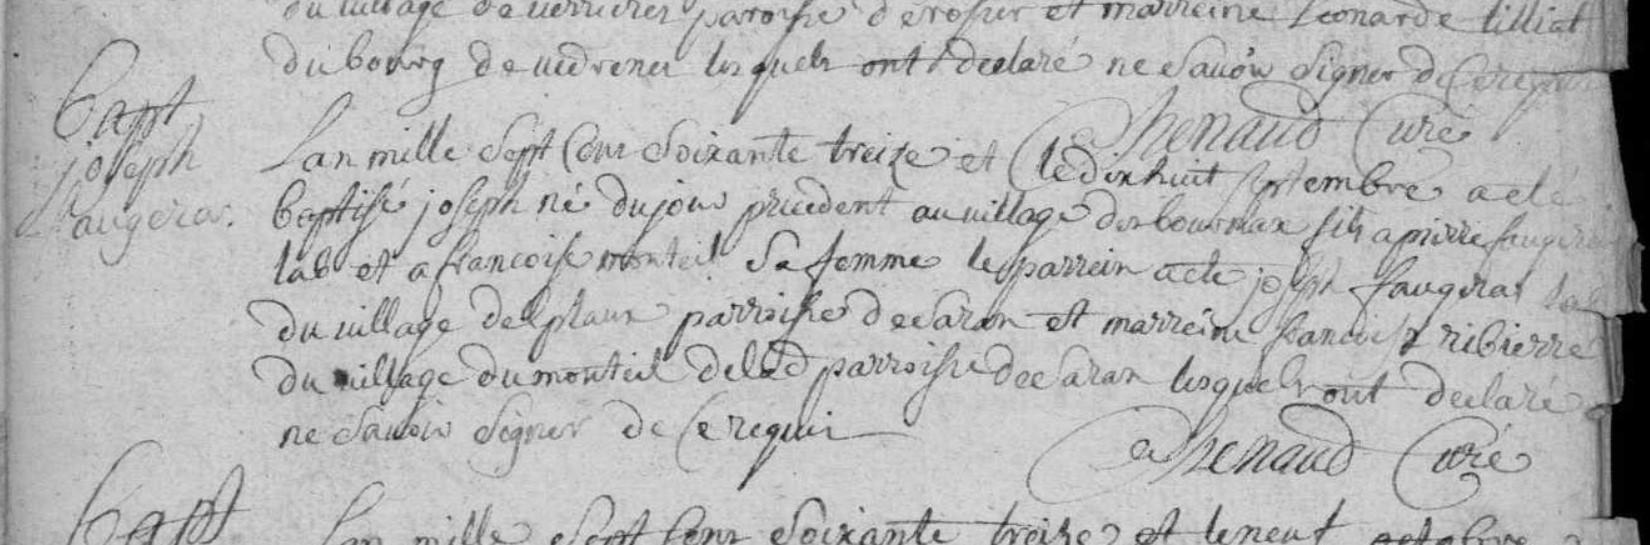 du village de verrieres paroisse de rosier et marreine Leonarde tilliat
du bourg de vedrenes lesquels ont declaré ne savoir signer de ce requis
Chenaud Curé
Bapt
joseph
faugeras.
Lan mille sept cens soixante treize et le dixhuit septembre a eté
baptisé joseph né du jour precedent au village des fils a pierre faugeras
lab et a francoise monteil sa femme le parrein a ete joseph faugeras lab
du village delplaux parroisse de saran et marreine francoise ribierre
du village du monteil de lad parroisse de saran lesquels ont declaré
ne savoir signer de ce requis
Chenaud Curé
Bapt
Lan mille sept cens soixante treize et le neuf octobre a